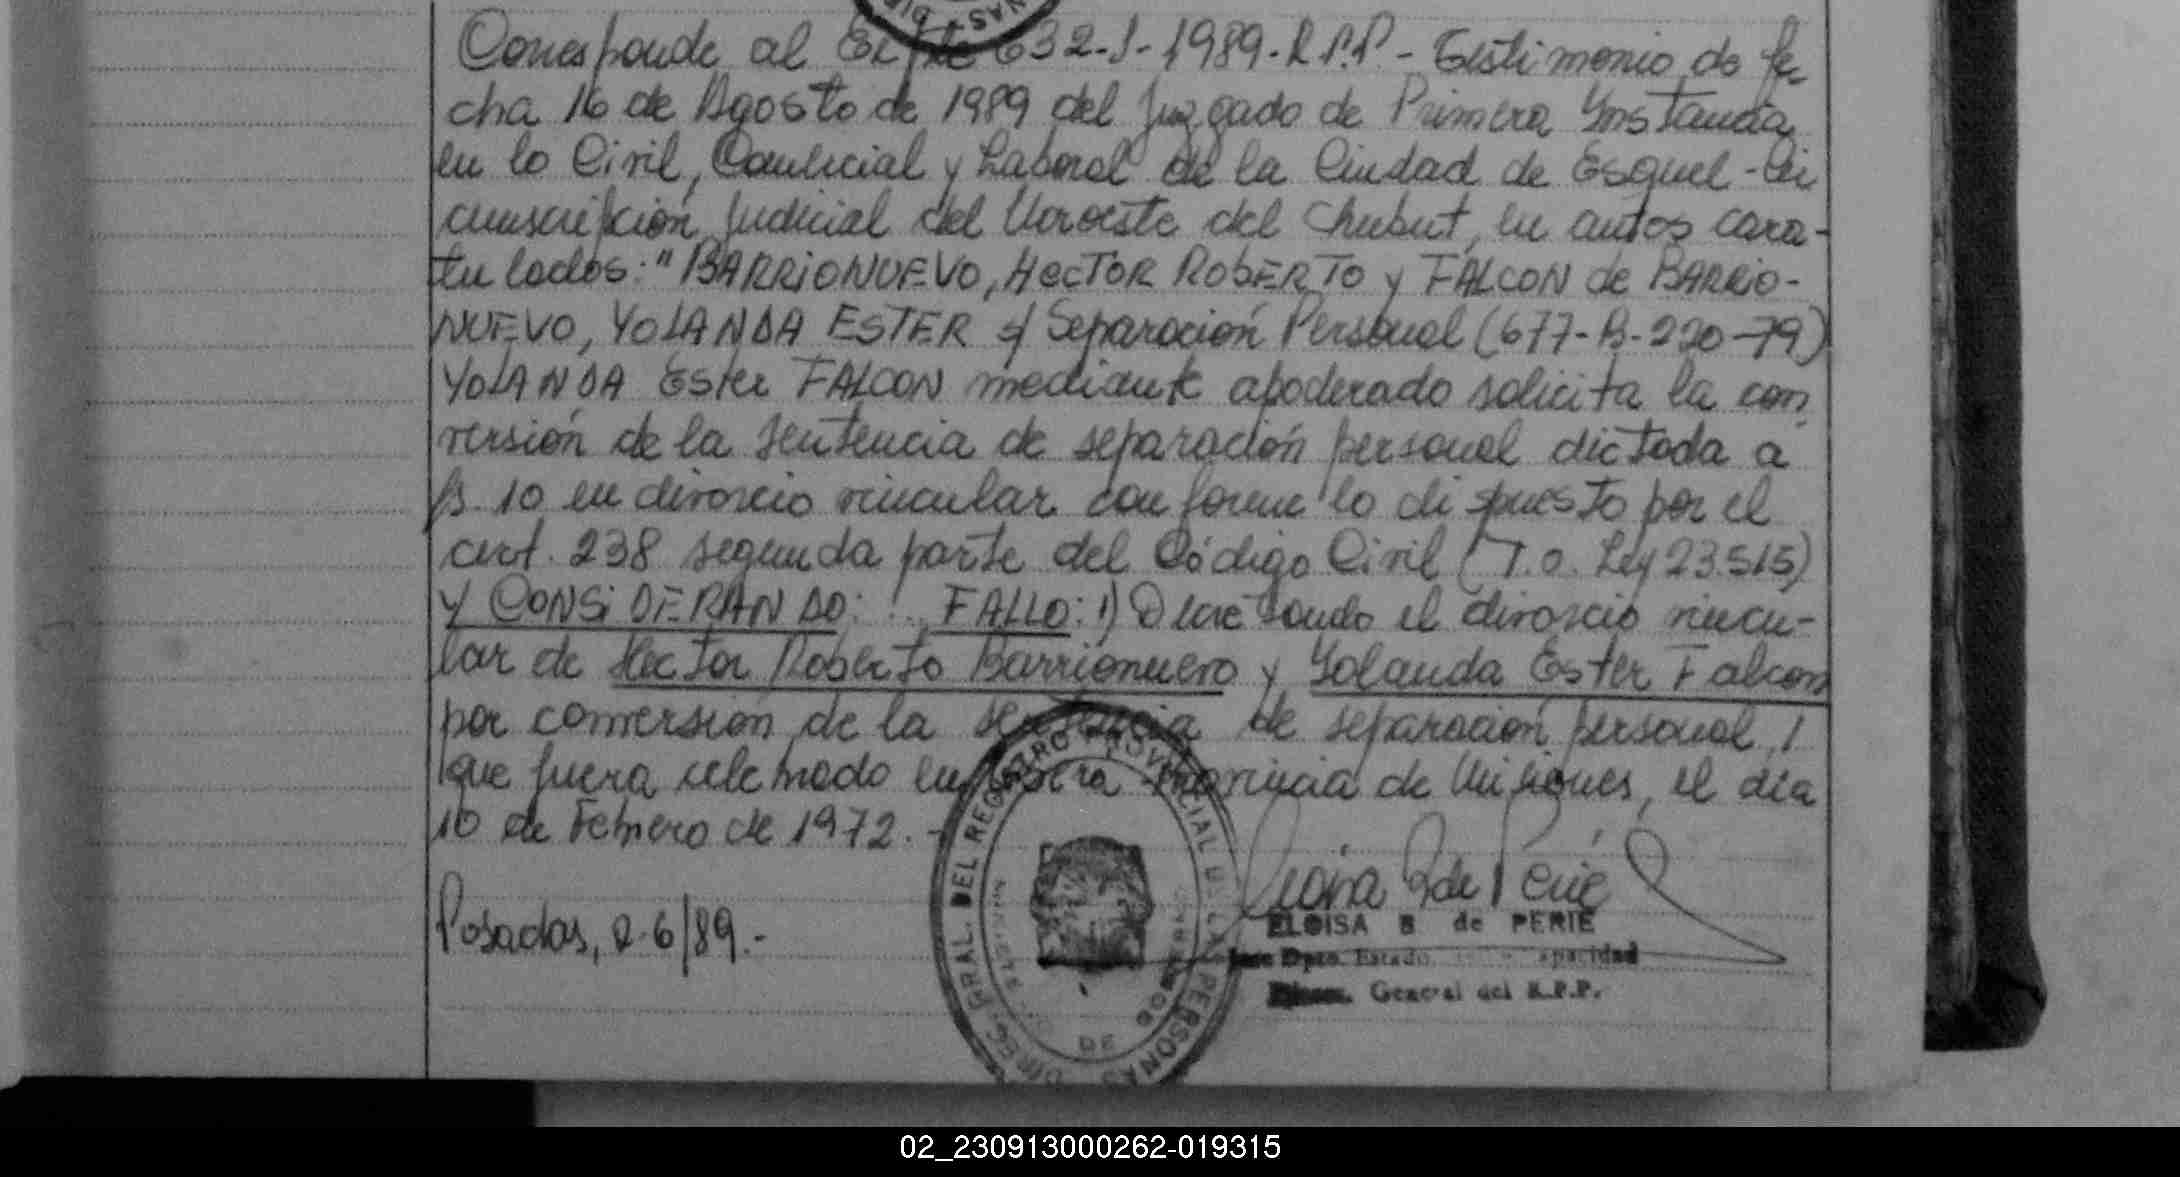 Corresponde al Expte 632-J-1989-R.P.P.- Testimonio de fe-
cha 16 de Agosto de 1989 del Juzgado de Primera Ynstancia
en lo Civil, Comercial y Laboral de la Ciudad de Esquel - Cir
cunscripción Judicial del Noroeste del Chubut, en autos cara-
tulados: "BARRIONUEVO, HECTOR ROBERTO y FALCON de BARRIO-
NUEVO, YOLANDA ESTER s/ Separación Personal (677-B-220-79)
YOLANDA Ester FALCON mediante apoderado solicita la con
versión de la sentencia de separación personal dictada a
fs. 10 en divorcio vincular conforme lo dispuesto por el
art. 238 segunda parte del Código Civil (T.o. Ley 23.515)
Y CONSIDERANDO: ... FALLO: 1) Decretando el divorcio vincu-
lar de Hector Roberto Barrionuevo y Yolanda Ester Falcon
por conversión de la sentencia de separación personal,
que fuera celebrado en provincia de Misiones, el día
10 de Febrero de 1972.-
Posadas, 2-6/89.-
DIREC. GRAL. DEL REGISTRO PROVINCIAL DE LAS PERSONAS
ELOISA B de PERIE
Dpto. Estado apacidad
General del R.P.P.
02_230913000262-019315